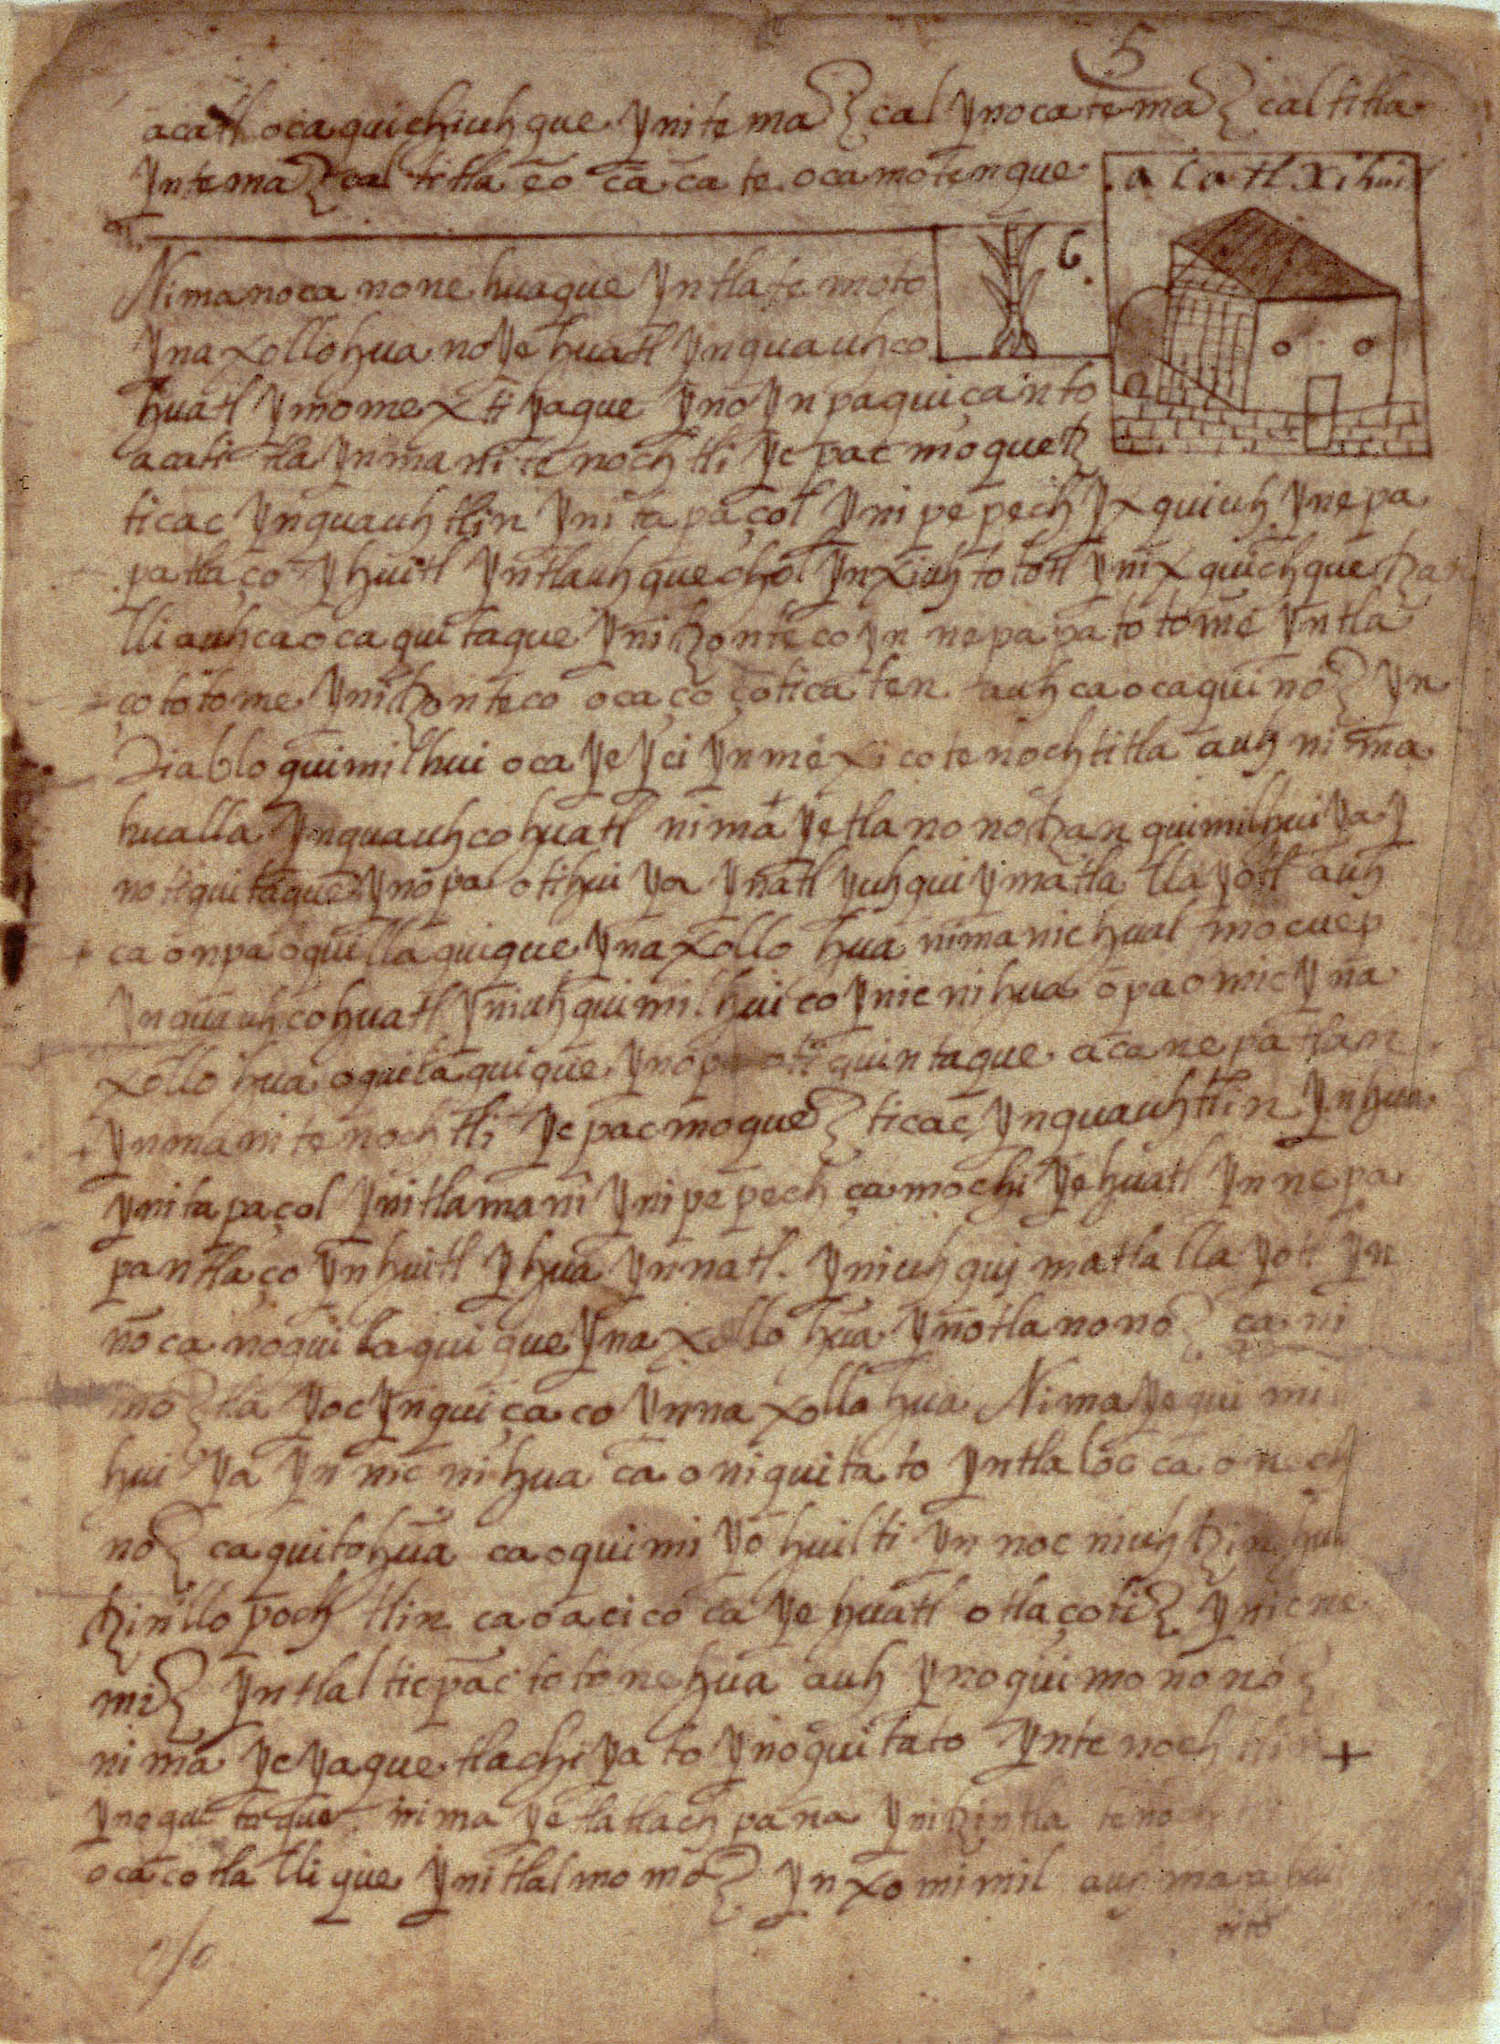 5
acatl ocaquichiuhque ynitemazcal ynoca temazcaltitla
yntemazcal titla eō cācate ocamotenque
acatl xihuitl
6.
Nimanoca no nehuaque yntlatemoto
ynaxollohua no yehuatl ynquauhco
huatl ymomextī yaque yno yn paquiçainto
acatitla ynmani tenochtli ycpac moquetz
ticac ynquauhtlin ynitapaçol ynipepech yxquiuh ynepa
patlaço yhuitl yntlauhquechol ynxiuhtototl ynixquichquetza
lli auhcaocaquitaque ynitzonteco yn nepapa totome yntla
çototome ynitzonteco ocaçoçoticaten auhcaocaquinōz yn
Diablo quimilhui oca yeyci ynmexico tenochtitla auh nima
hualla ynquauhcohuatl nimā yetlanonotzan quimilhui ya y
notiquitaque ynōpa otihui ya ynatl yuhqui ymatlallayotl auh
ca onpa oquittaquique ynaxollohua nimanic hualmocuep
ynquauhcohuatl yniuhquimilhuico ynicnihua ōpa omic yna
xollohua oquitaquique ynop otiquintaque acanepatzan
ynmani tenochtli ycpacmoquez ticac ynquauhtlin ynhua
ynitapaçol ynitlamani ynipepech çamochi yehuatl ynnepa
pantlaço ynhuitl yhua ynnatl. yniuhqui matlallayotl yn
nōca noquitaquique ynaxollohua ynotlanonōz ca ni
mōztla yoc ynquiçaco ynnaxollohua Nima yequimi
hui ya yn nicnihua ca oniquitato yntlaloc ca onech
nōz caquitohua caoquimiyōhuilti yn nocniuhtzin hui
tzinllopochtlin caoacico ca yehuatl otlaçotiz ynicne
miz yntlalticpac totonehua auh ynoquimononōz
nima ycyaque tlachiyato ynoquitato yntenochtli
ynoquitaque nima yetlatlachpana ynitzintla tenoch
ocacotlallique ynitlalmomōz ynxomimil auh